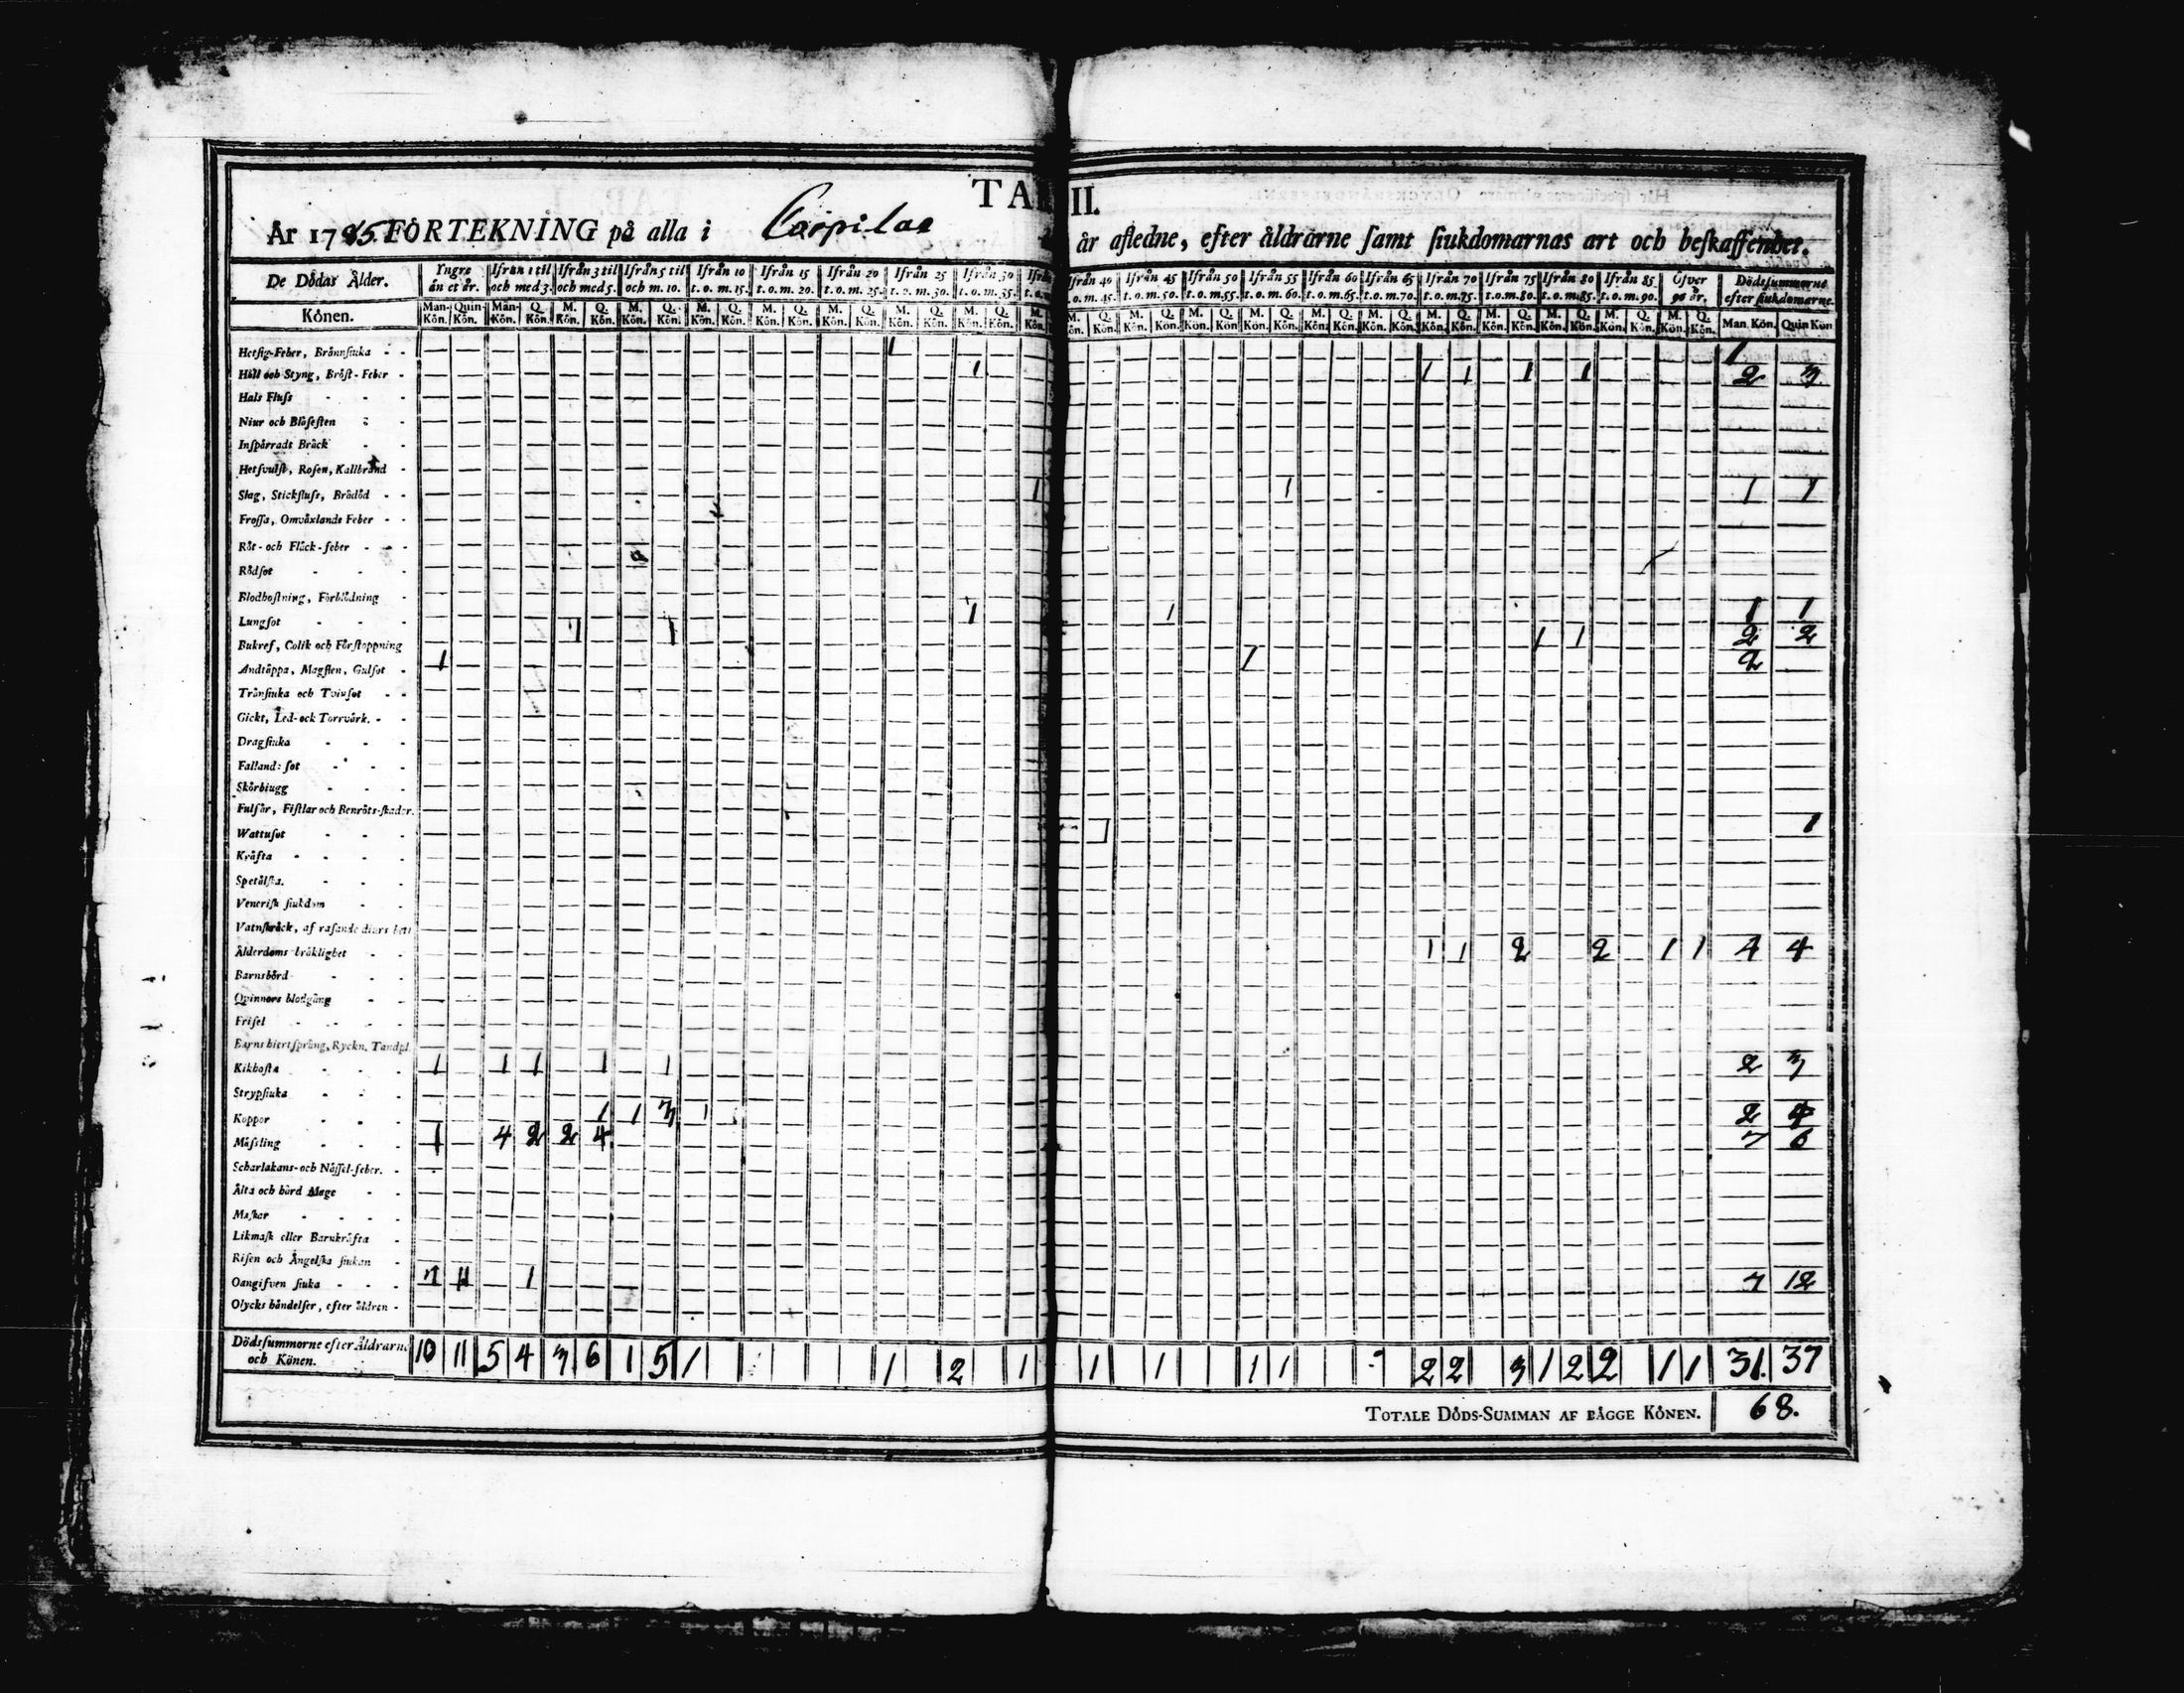 TAB II.
År 1785. FÖRTEKNING på alla i Carpilax år afledne, efter åldrarne samt siukdomarnas art och beskaffenhet.
De Dödas Ålder. Yngre än et år. Ifrån 1 til och med 3. Ifrån 3 til och med 5. Ifrån 5 til och m. 10. Ifrån 10 t. o. m. 15. Ifrån 15 t. o. m. 20. Ifrån 20 t. o. m. 25. Ifrån 25 t. o. m. 30. Ifrån 30 t. o. m. 35. Ifrån 40 t. o. m. 45. Ifrån 45 t. o. m. 50. Ifrån 50 t. o. m. 55. Ifrån 55 t. o. m. 60. Ifrån 60 t. o. m. 65. Ifrån 65 t. o. m. 70. Ifrån 70 t. o. m. 75. Ifrån 75 t. o. m. 80. Ifrån 80 t. o. m. 85. Ifrån 85 t. o. m. 90. Öfver 90 år. Dödssummorne efter siukdomarne.
Könen. Man-Kön. Quin-Kön. Man-Kön. Q. Kön. M. Kön. Q. Kön. M. Kön. Q. Kön. M. Kön. Q. Kön. M. Kön. Q. Kön. M. Kön. Q. Kön. M. Kön. Q. Kön. M. Kön. Q. Kön. M. Kön. Q. Kön. M. Kön. Q. Kön. M. Kön. Q. Kön. M. Kön. Q. Kön. M. Kön. Q. Kön. M. Kön. Q. Kön. M. Kön. Q. Kön. M. Kön. Q. Kön. M. Kön. Q. Kön. M. Kön. Q. Kön. M. Kön. Q. Kön. Man Kön. Quin Kön
Hetsig-Feber, Brännsiuka 1 1
Håll och Styng, Bröst-Feber 1 1 1 1 1 2 3
Hals Fluss
Niur och Blåsesten
Inspärradt Bråck
Hetsvulst, Rosen, Kallbrand
Slag, Stickfluss, Brådöd 1 1 1 1
Frossa, Omväxlands Feber
Röt- och Fläck-feber
Rödsot
Blodhostning, Förblödning
Lungsot 1 1 1 1
Bukref, Colik och Förstoppning 1 1 1 1 2 2
Andtäppa, Magsten, Gulsot 1 1 2
Trånsiuka och Tvinsot
Gickt, Led- och Torrvärk.
Dragsiuka
Falland: sot
Skörbiugg
Fulsår, Fistlar och Benröts-skador.
Wattusot 1 1
Kräfta
Spetälska.
Venerisk siukdom
Vatnskräck, af rasande diurs bett
Ålderdoms bräklighet 1 1 2 2 1 1 4 4
Barnsbörd
Qvinnors blodgång
Frisel
Barns hiertsprång, Ryckn. Tandpl.
Kikhosta 1 1 1 1 1 2 3
Strypsiuka
Koppor 1 1 3 1 2 4
Mässling 1 4 2 2 4 7 6
Scharlakans- och Nässel-feber.
Älta och hård Mage
Maskar
Likmask eller Barnkräfta
Risen och Ängelska siukan
Oangifven siuka 7 11 1 7 12
Olycks händelser, efter åldren
Dödssummorne efter Åldrarne och Könen. 10 11 5 4 3 6 1 5 1 1 2 1 1 1 1 1 2 2 3 1 2 2 1 1 31. 37
TOTALE DÖDS-SUMMAN AF BÄGGE KÖNEN. 68.